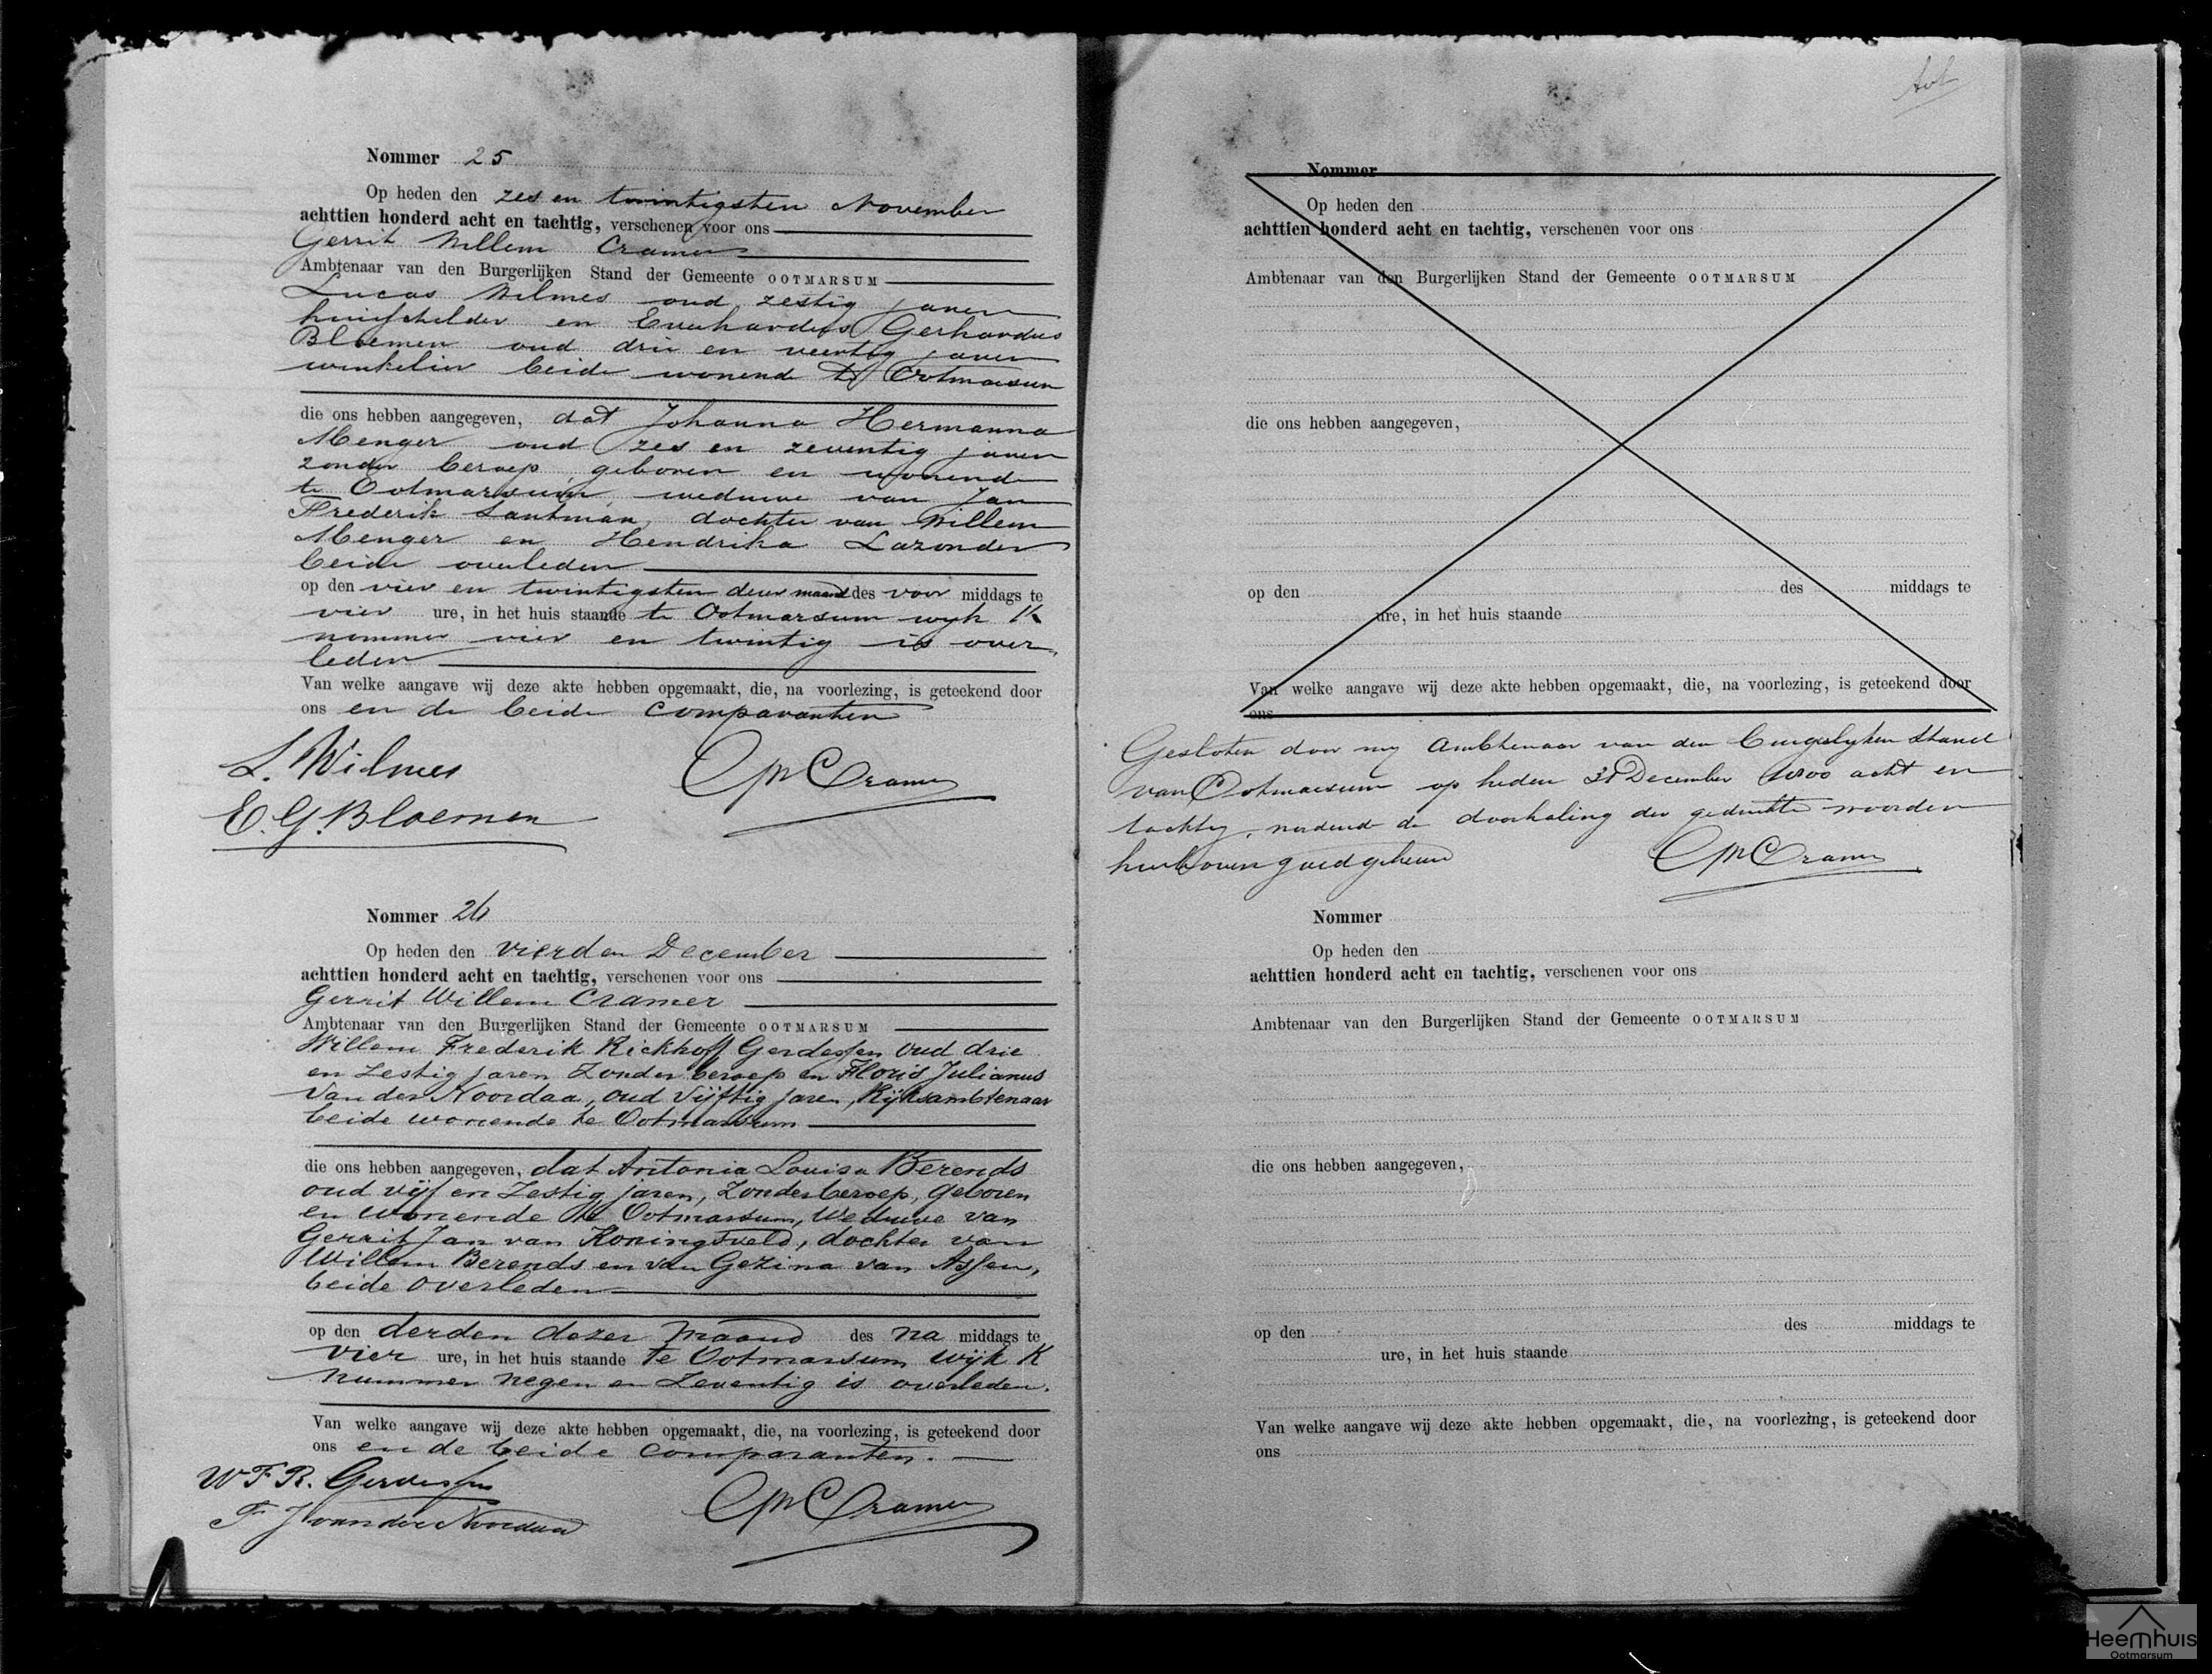 Nommer 25
Op heden den zes en twintigsten November
achttien honderd acht en tachtig, verschenen voor ons
Gerrit Willem Cramer
Ambtenaar van den Burgerlijken Stand der Gemeente OOTMARSUM
Lucas Wilmes oud zestig jaren
huisschilder en Everhardus Gerhardus
Bloemen oud drie en veertig jaren
winkelier beide wonende te Ootmarsum
die ons hebben aangegeven, dat Johanna Hermanna
Menger oud zes en zeventig jaren
zonder beroep, geboren en wonende
te Ootmarsum, weduwe van Jan
Frederik Santman, dochter van Willem
Menger en Hendrika Lazonder
beide overleden
op den vier en twintigsten dezer maand des voor middags te
vier ure, in het huis staande te Ootmarsum wijk K
nommer vier en twintig is over
leden
Van welke aangave wij deze akte hebben opgemaakt, die, na voorlezing, is geteekend door
ons en de beide comparanten
L. Wilmes
GWCramer
E. G. Bloemen
Nommer 26
Op heden den vierden December
achttien honderd acht en tachtig, verschenen voor ons
Gerrit Willem Cramer
Ambtenaar van den Burgerlijken Stand der Gemeente OOTMARSUM
Willem Frederik Rickhoff Gerdessen oud drie
en zestig jaren zonder beroep en Floris Julianus
van der Noordaa, oud vijftig jaren, Rijksambtenaar
beide wonende te Ootmarsum
die ons hebben aangegeven, dat Antonia Louisa Berends
oud vijf en zestig jaren, zonder beroep, geboren
en wonende te Ootmarsum, Weduwe van
Gerrit Jan van Koningsveld, dochter van
Willem Berends en van Gezina van Assen,
beide overleden
op den derden dezer maand des na middags te
vier ure, in het huis staande te Ootmarsum wijk K
nummer negen en zeventig is overleden.
Van welke aangave wij deze akte hebben opgemaakt, die, na voorlezing, is geteekend door
ons en de beide comparanten.
W F R. Gerdessen
GWCramer
F J van der Noordaa
Nommer
Op heden den
achttien honderd acht en tachtig, verschenen voor ons
Ambtenaar van den Burgerlijken Stand der Gemeente OOTMARSUM
die ons hebben aangegeven,
op den des middags te
ure, in het huis staande
Van welke aangave wij deze akte hebben opgemaakt, die, na voorlezing, is geteekend door
ons
Gesloten door mij Ambtenaar van den Burgerlijken Stand
van Ootmarsum op heden 31 December 1800 acht en
tachtig, wordende de doorhaling der gedrukte woorden
hierboven goedgekeurd
GWCramer
Nommer
Op heden den
achttien honderd acht en tachtig, verschenen voor ons
Ambtenaar van den Burgerlijken Stand der Gemeente OOTMARSUM
die ons hebben aangegeven,
op den des middags te
ure, in het huis staande
Van welke aangave wij deze akte hebben opgemaakt, die, na voorlezing, is geteekend door
ons
Heemhuis
Ootmarsum